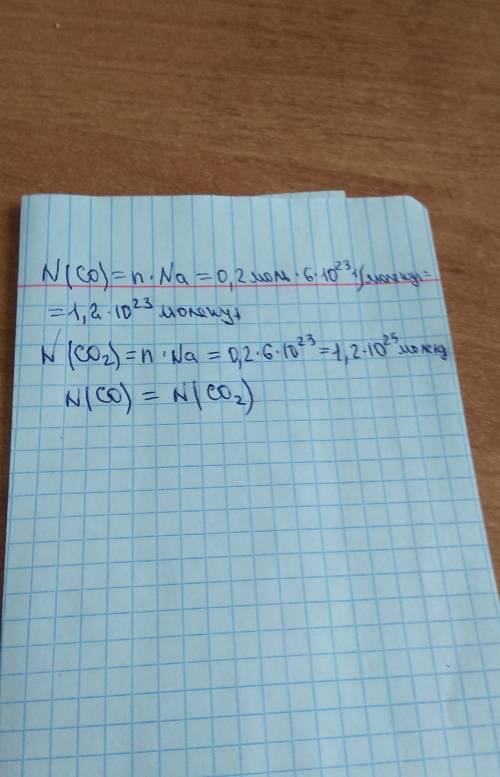 N(CO) = n · Na = 0,2 моль · 6 · 10²³ =
= 1,2 · 10²³ молекул
N(CO₂) = n · Na = 0,2 · 6 · 10²³ = 1,2 · 10²³ молекул
N(CO) = N(CO₂)